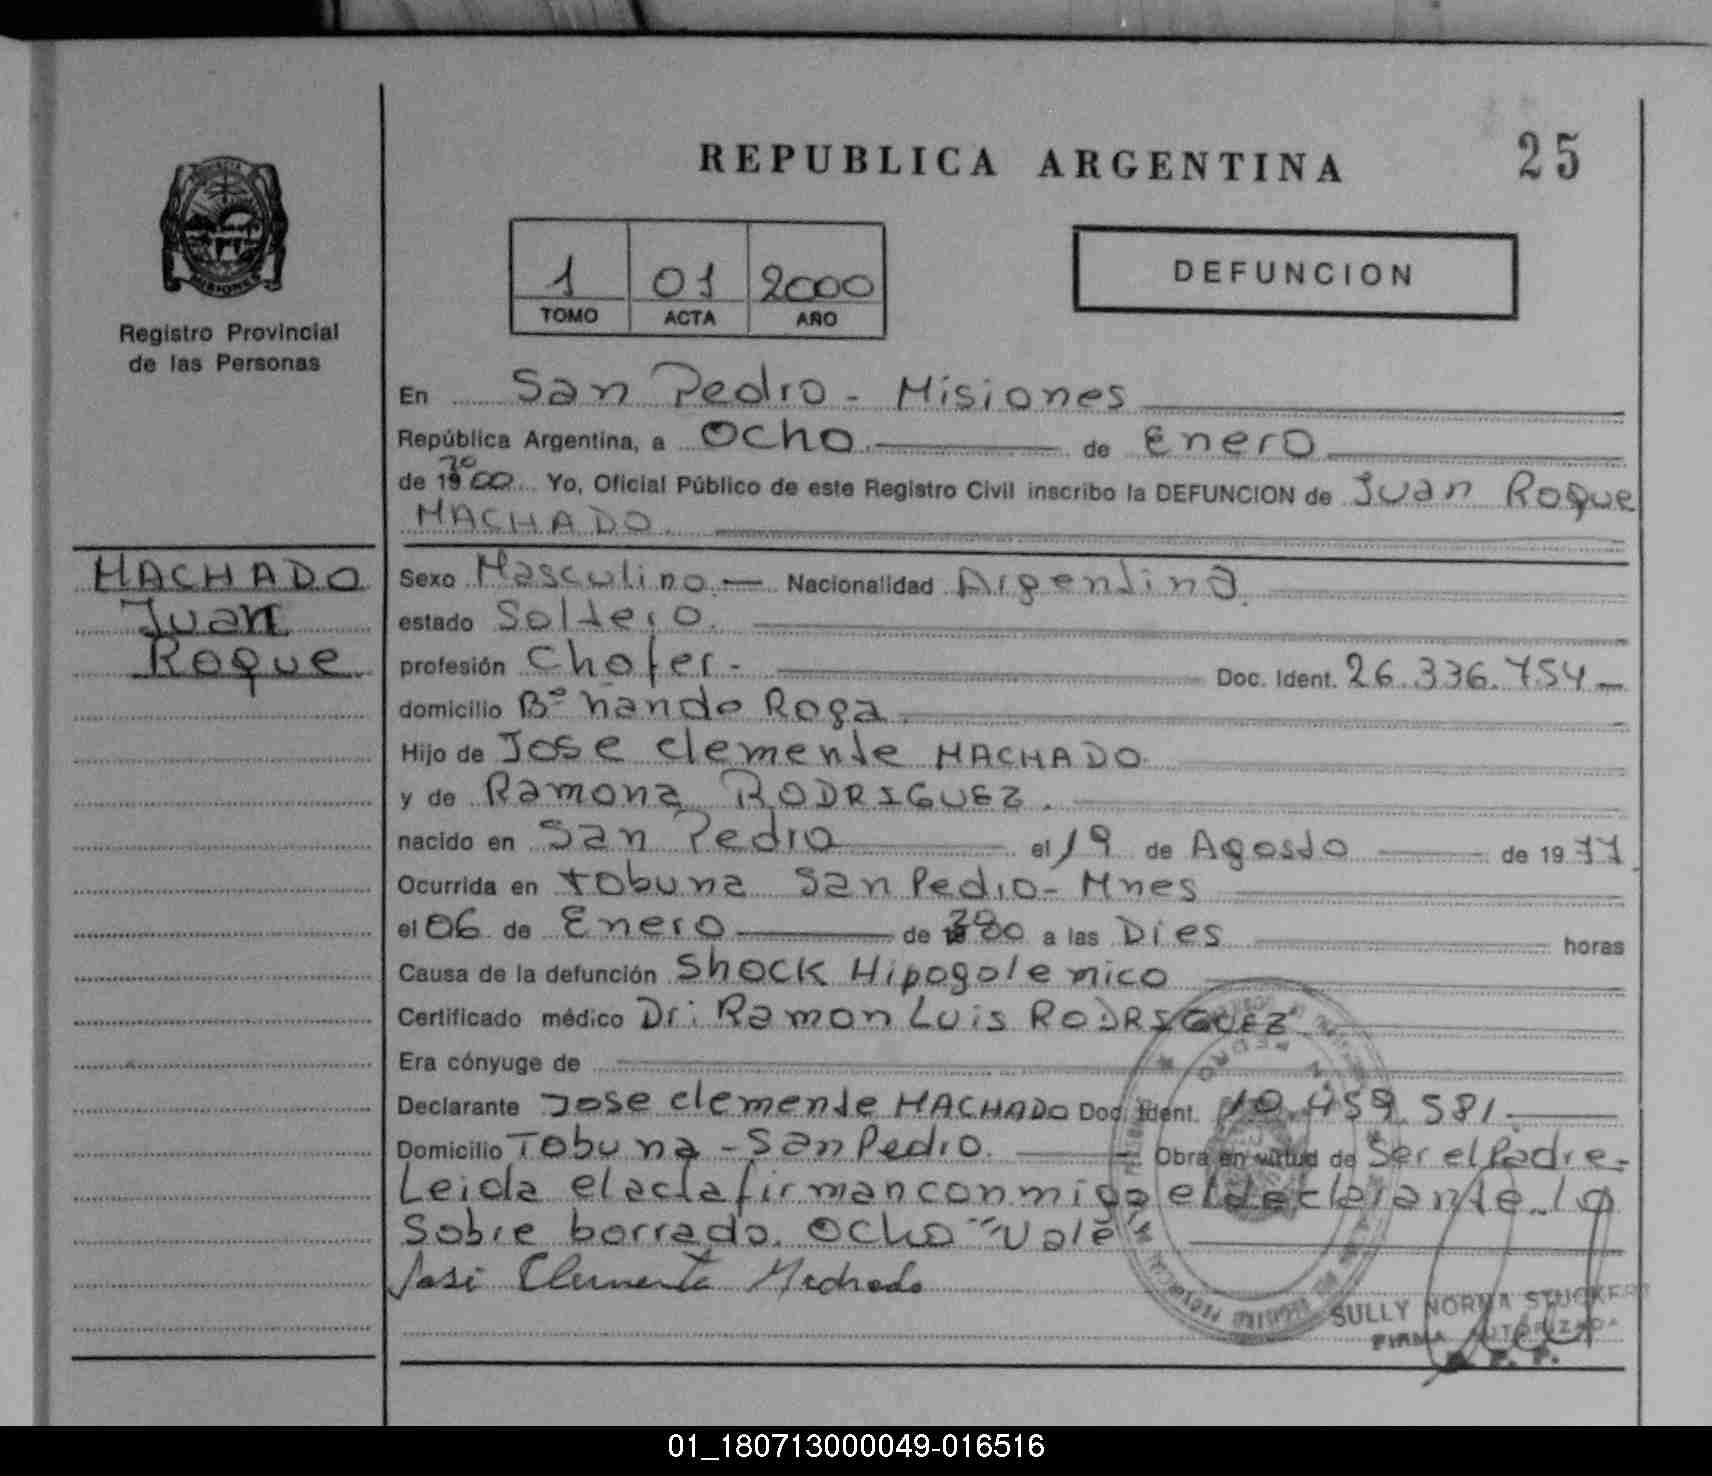 REPUBLICA ARGENTINA
25
MISIONES
Registro Provincial
de las Personas
1 01 2000
TOMO ACTA AÑO
DEFUNCION
En San Pedro - Misiones
República Argentina, a Ocho de Enero
de 1900 20 Yo, Oficial Público de este Registro Civil inscribo la DEFUNCION de Juan Roque
MACHADO.
MACHADO
Juan
Roque
Sexo Masculino.- Nacionalidad Argentina.
estado Soltero.
profesión Chofer.- Doc. Ident. 26.336.754-
domicilio Bº Ñando Roga
Hijo de Jose Clemente MACHADO
y de Ramona RODRIGUEZ.
nacido en San Pedro el 19 de Agosto de 1977
Ocurrida en Tobuna San Pedro - Mnes
el 06 de Enero de 2000 a las Dies horas
Causa de la defunción Shock Hipogolemico
Certificado médico Dr: Ramon Luis RODRIGUEZ
Era cónyuge de
Declarante Jose Clemente MACHADO Doc. Ident. 10.459.581.
Domicilio Tobuna - San Pedro. Obra en virtud de Ser el Padre.-
Leida el acta firman conmigo el declarante. lo
Sobre borrado. Ocho " Vale
José Clemente Machado
SULLY NORMA STUCKERT
FIRMA AUTORIZADA
R. P. P.
01_180713000049-016516